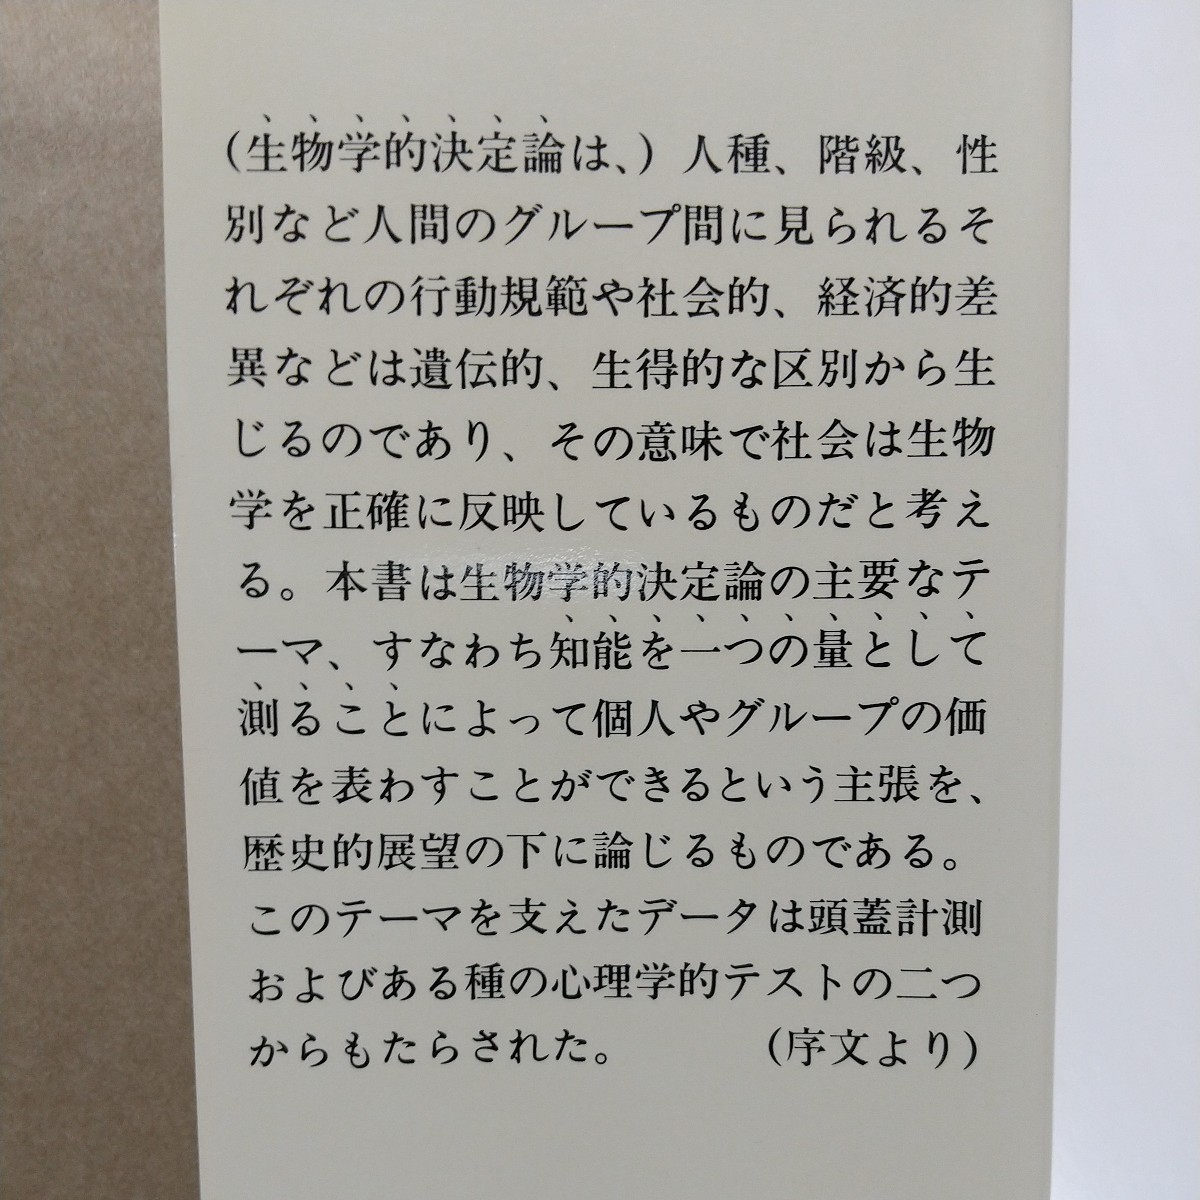 （生物学的決定論は、）人種、階級、性
別など人間のグループ間に見られるそ
れぞれの行動規範や社会的、経済的差
異などは遺伝的、生得的な区別から生
じるのであり、その意味で社会は生物
学を正確に反映しているものだと考え
る。本書は生物学的決定論の主要なテ
ーマ、すなわち知能を一つの量として
測ることによって個人やグループの価
値を表わすことができるという主張を、
歴史的展望の下に論じるものである。
このテーマを支えたデータは頭蓋計測
およびある種の心理学的テストの二つ
からもたらされた。　（序文より）